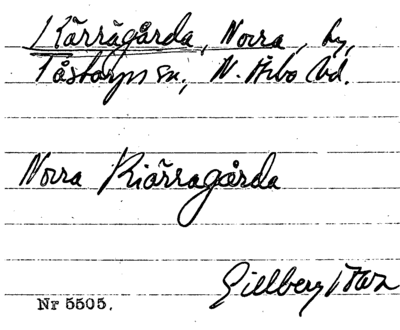 Kärragårda, Norra, by,
Tåstarps sn., N. Åsbo hd.
Norra Kiärragårda
Gillberg 1765
Nr 5505.